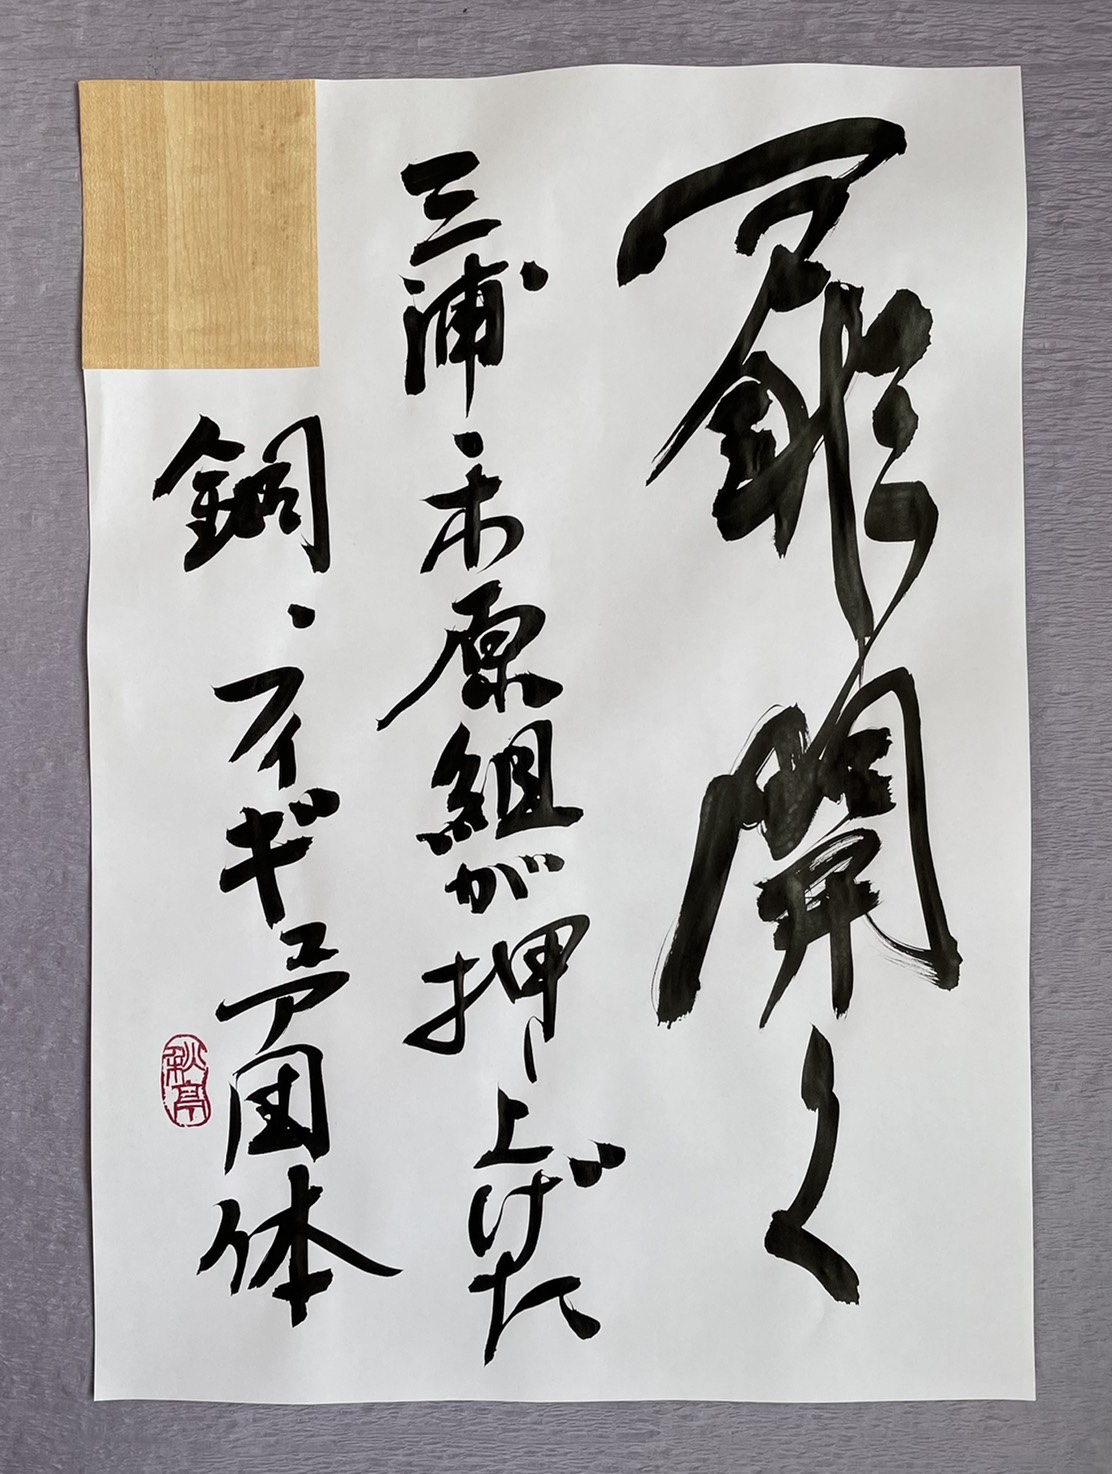 扉開く
三浦・木原組が押し上げた
銅・フィギュア団体
秋亭